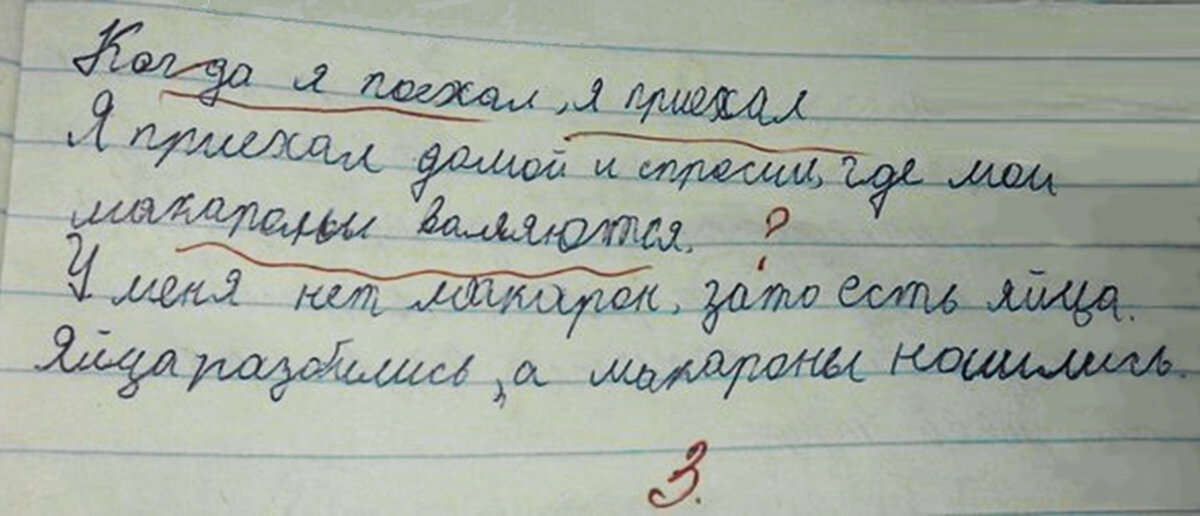 Когда я поехал, я приехал
Я приехал домой и спросил, где мои
макароны валяются. ?
У меня нет макарон, зато есть яйца.
Яйца разбились, а макароны нашлись.
3.